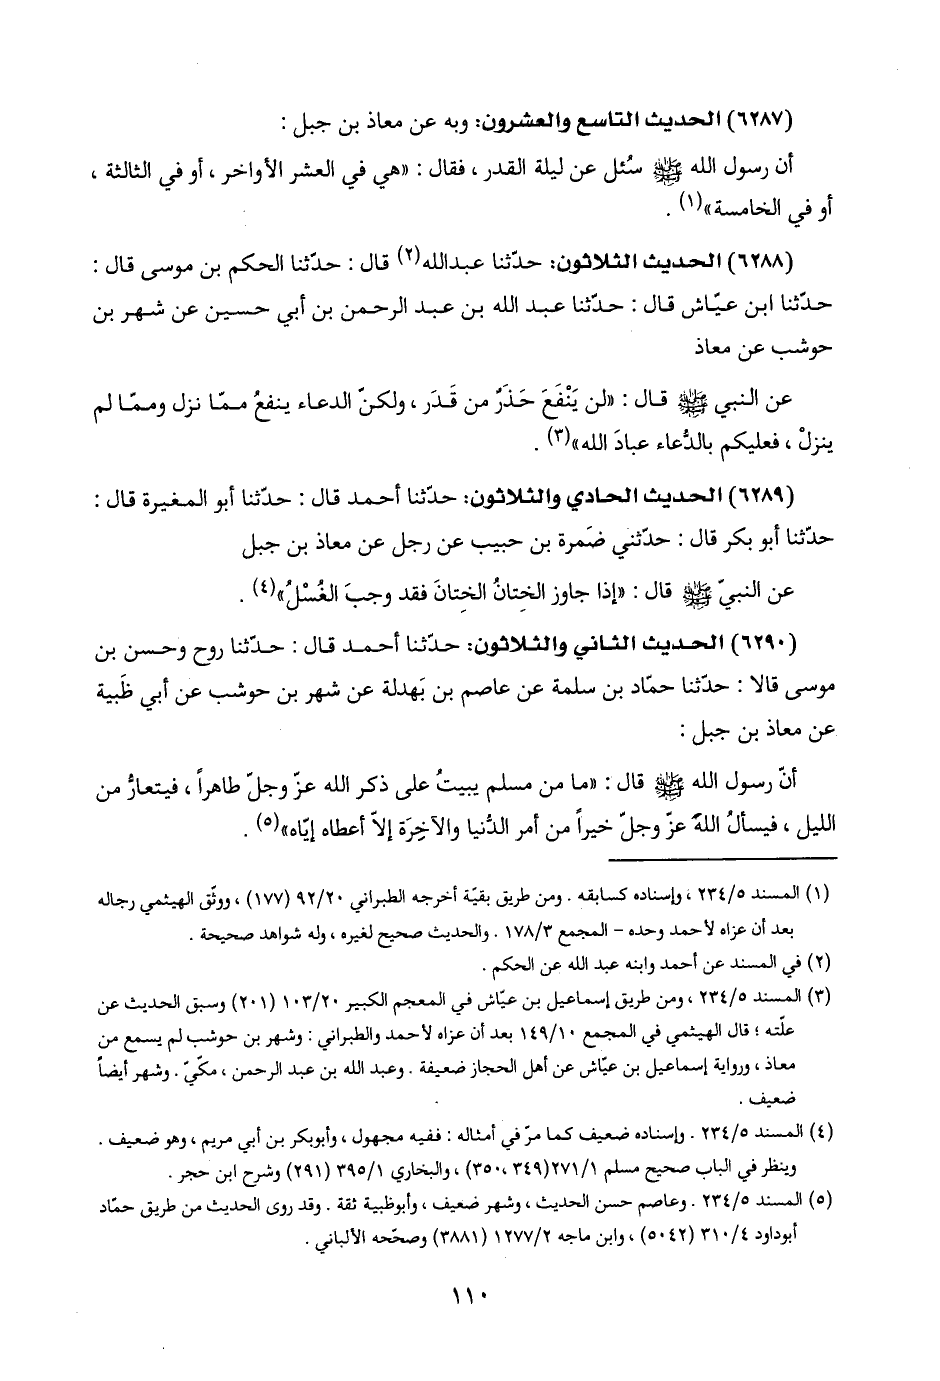 (٦٢٨٧) الحديث التاسع والعشرون: وبه عن معاذ بن جبل :
أن رسول الله ﷺ سُئل عن ليلة القدر ، فقال : «هي في العشر الأواخر ، أو في الثالثة ،
أو في الخامسة»(١) .
(٦٢٨٨) الحديث الثلاثون: حدّثنا عبدالله(٢) قال : حدّثنا الحكم بن موسى قال :
حدّثنا ابن عيّاش قال : حدّثنا عبد الله بن عبد الرحمن بن أبي حسين عن شهر بن
حوشب عن معاذ
عن النبي ﷺ قال : «لن يَنْفَعَ حَذَرٌ من قَدَر ، ولكنّ الدعاء ينفعُ ممّا نزل وممّا لم
ينزلْ ، فعليكم بالدُّعاء عبادَ الله»(٣) .
(٦٢٨٩) الحديث الحادي والثلاثون: حدّثنا أحمد قال : حدّثنا أبو المغيرة قال :
حدّثنا أبو بكر قال : حدّثني ضَمرة بن حبيب عن رجل عن معاذ بن جبل
عن النبيّ ﷺ قال : «إذا جاوز الخِتانُ الخِتانَ فقد وجبَ الغُسْلُ»(٤) .
(٦٢٩٠) الحديث الثاني والثلاثون: حدّثنا أحمد قال : حدّثنا روح وحسن بن
موسى قالا : حدّثنا حمّاد بن سلمة عن عاصم بن بَهدلة عن شهر بن حوشب عن أبي ظَبية
عن معاذ بن جبل :
أنّ رسول الله ﷺ قال : «ما من مسلم يبيتُ على ذكر الله عزّ وجلّ طاهراً ، فيتعارُّ من
الليل ، فيسألُ اللهَ عزّ وجلّ خيراً من أمر الدُّنيا والآخِرَة إلاّ أعطاه إيّاه»(٥) .
(١) المسند ٢٣٤/٥ ، وإسناده كسابقه . ومن طريق بقيّة أخرجه الطبراني ٩٢/٢٠ (١٧٧) ، ووثّق الهيثمي رجاله
بعد أن عزاه لأحمد وحده – المجمع ١٧٨/٣ . والحديث صحيح لغيره ، وله شواهد صحيحة .
(٢) في المسند عن أحمد وابنه عبد الله عن الحكم .
(٣) المسند ٢٣٤/٥ ، ومن طريق إسماعيل بن عيّاش في المعجم الكبير ١٠٣/٢٠ (٢٠١) وسبق الحديث عن
علّته ؛ قال الهيثمي في المجمع ١٤٩/١٠ بعد أن عزاه لأحمد والطبراني : وشهر بن حوشب لم يسمع من
معاذ ، ورواية إسماعيل بن عيّاش عن أهل الحجاز ضعيفة . وعبد الله بن عبد الرحمن ، مكّيّ . وشهر أيضاً
ضعيف .
(٤) المسند ٢٣٤/٥ . وإسناده ضعيف كما مرّ في أمثاله : ففيه مجهول ، وأبوبكر بن أبي مريم ، وهو ضعيف .
وينظر في الباب صحيح مسلم ٢٧١/١(٣٤٩ ،٣٥٠) ، والبخاري ٣٩٥/١ (٢٩١) وشرح ابن حجر .
(٥) المسند ٢٣٤/٥ . وعاصم حسن الحديث ، وشهر ضعيف ، وأبوظبية ثقة . وقد روى الحديث من طريق حمّاد
أبوداود ٣١٠/٤ (٥٠٤٢) ، وابن ماجه ١٢٧٧/٢ (٣٨٨١) وصحّحه الألباني .
١١٠